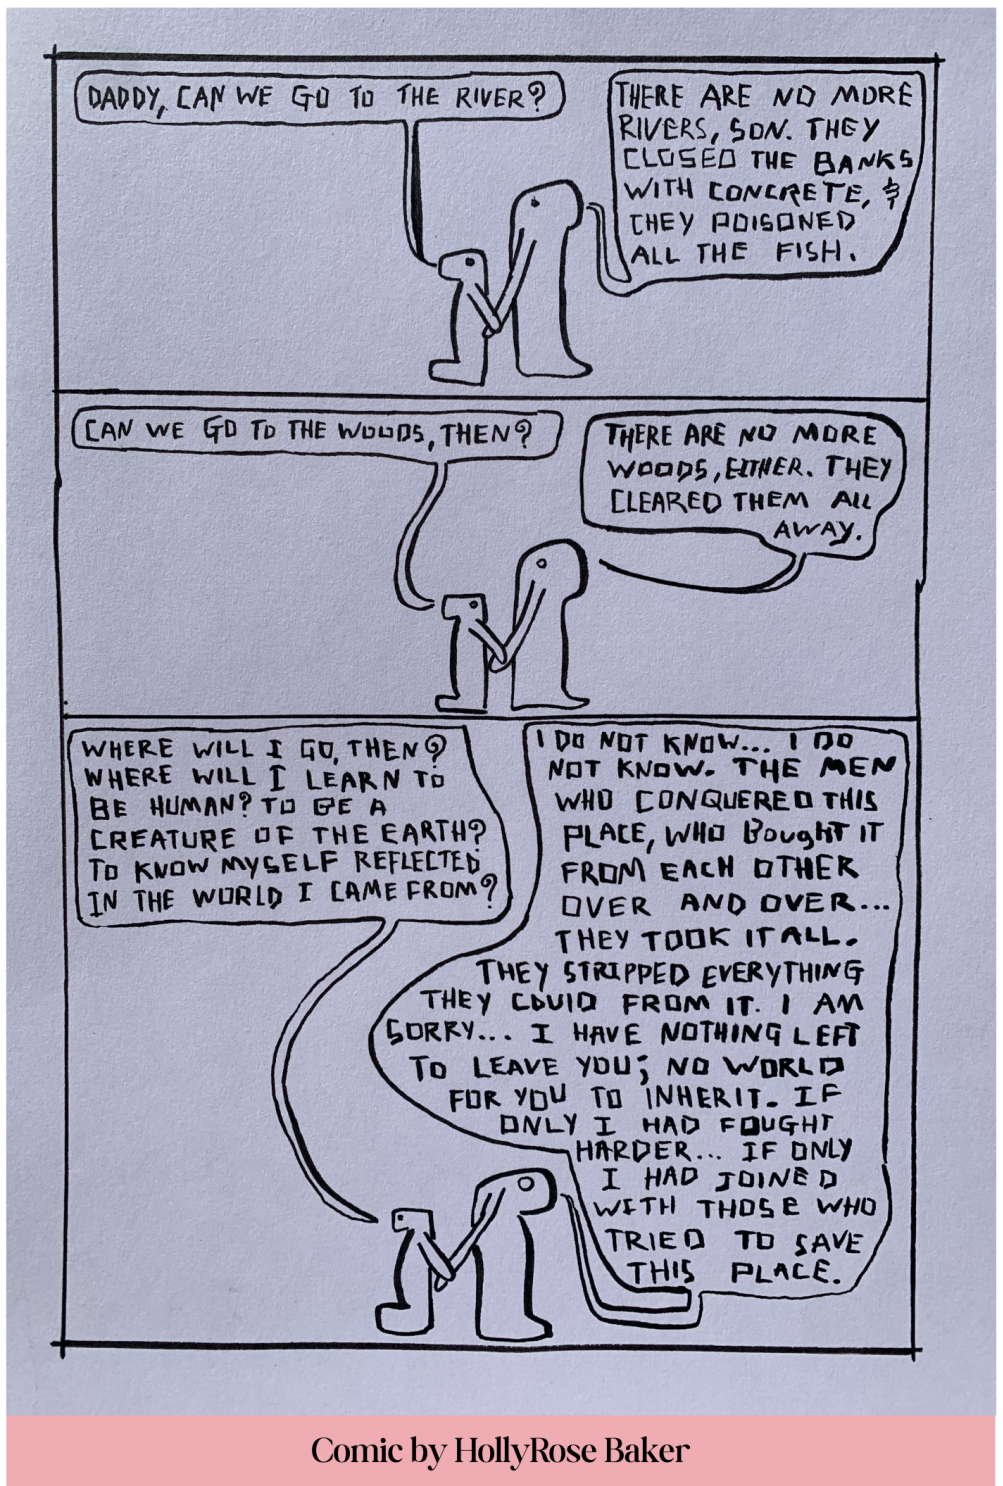 DADDY, CAN WE GO TO THE RIVER?
THERE ARE NO MORE
RIVERS, SON. THEY
CLOSED THE BANKS
WITH CONCRETE, &
THEY POISONED
ALL THE FISH.
CAN WE GO TO THE WOODS, THEN?
THERE ARE NO MORE
WOODS, EITHER. THEY
CLEARED THEM ALL
AWAY.
WHERE WILL I GO, THEN?
WHERE WILL I LEARN TO
BE HUMAN? TO BE A
CREATURE OF THE EARTH?
TO KNOW MYSELF REFLECTED
IN THE WORLD I CAME FROM?
I DO NOT KNOW... I DO
NOT KNOW. THE MEN
WHO CONQUERED THIS
PLACE, WHO BOUGHT IT
FROM EACH OTHER
OVER AND OVER...
THEY TOOK IT ALL.
THEY STRIPPED EVERYTHING
THEY COULD FROM IT. I AM
SORRY... I HAVE NOTHING LEFT
TO LEAVE YOU; NO WORLD
FOR YOU TO INHERIT. IF
ONLY I HAD FOUGHT
HARDER... IF ONLY
I HAD JOINED
WITH THOSE WHO
TRIED TO SAVE
THIS PLACE.
Comic by HollyRose Baker